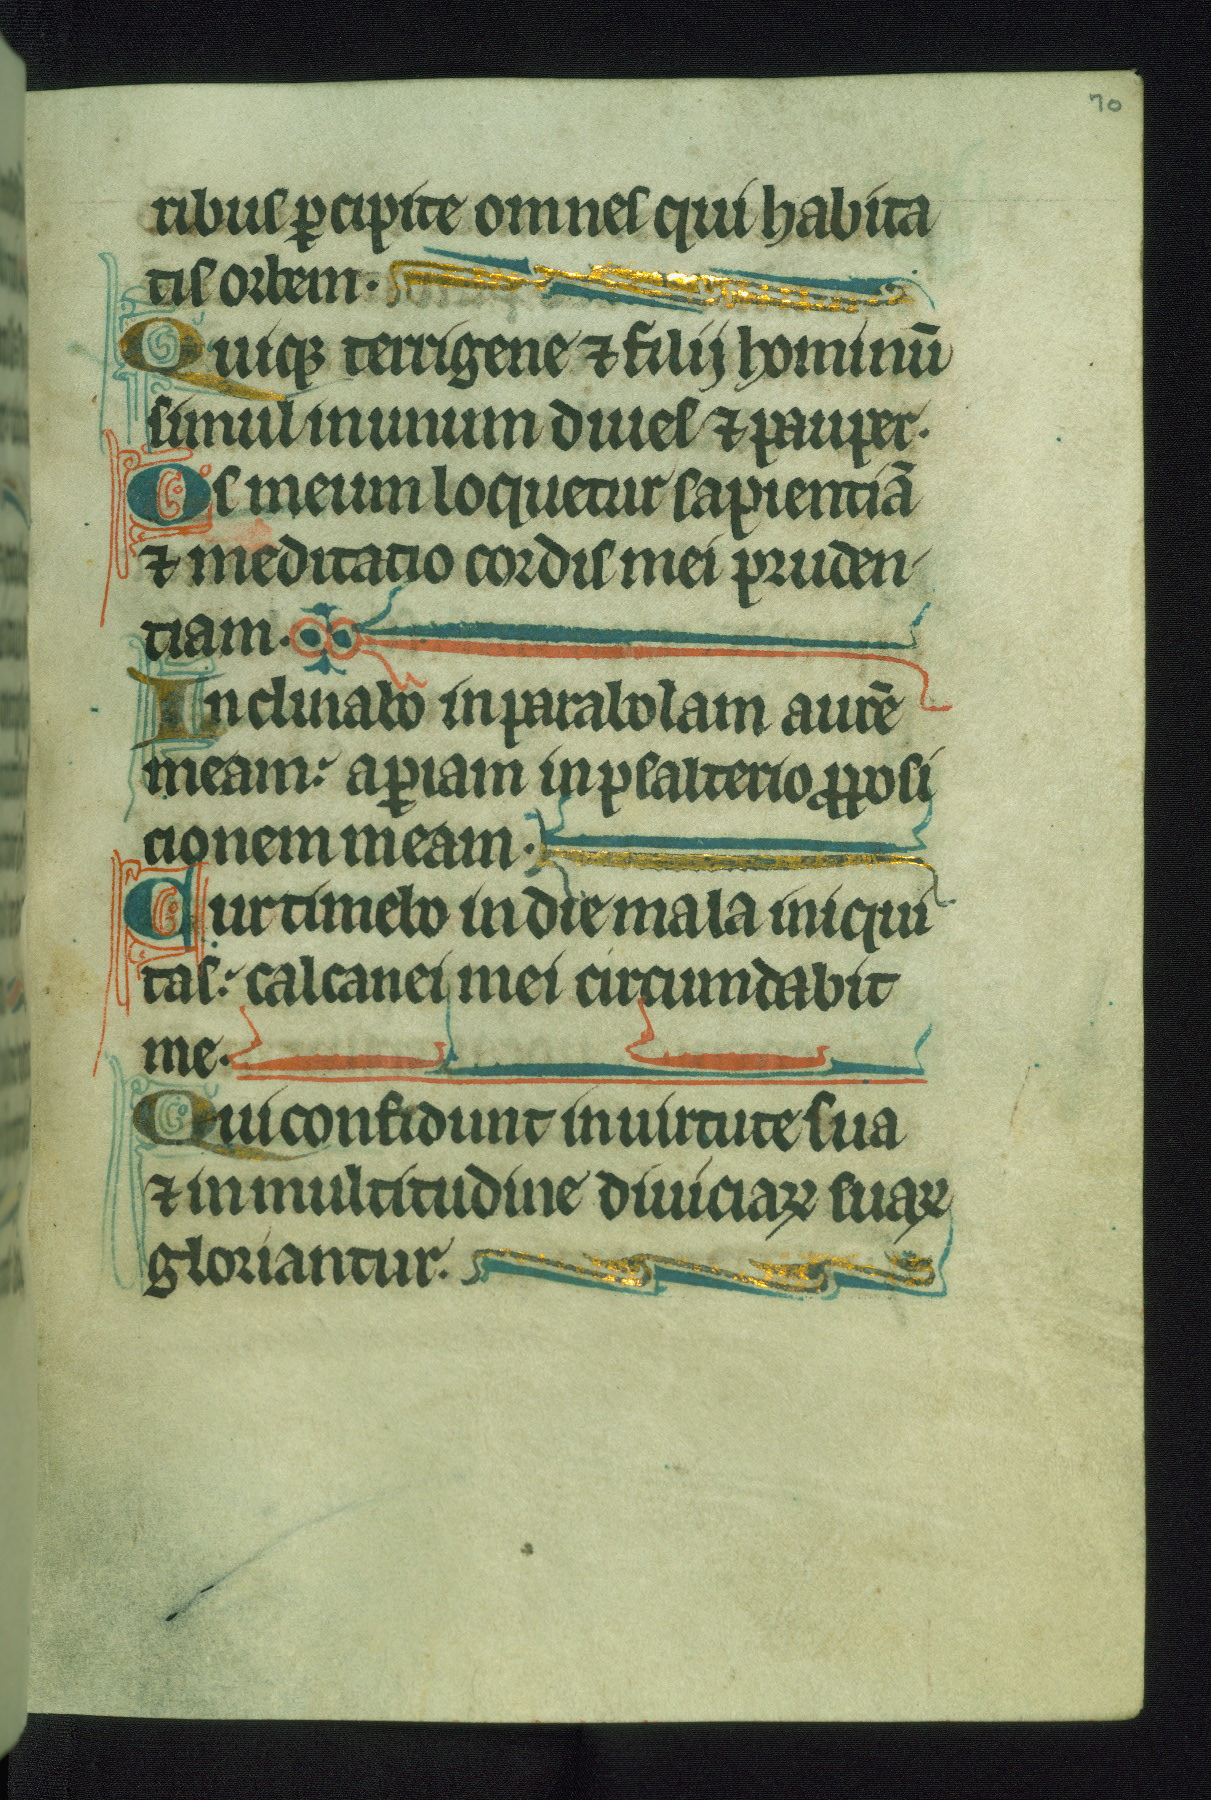 70
ribus ꝑcipite omnes qui habita
tis orbem.
Quiqꝫ terrigene ⁊ filij hominū
simul in unum diues ⁊ pauper.
Os meum loquetur sapientiā
⁊ meditatio cordis mei pruden-
tiam.
Inclinabo in parabolam aurē
meam: aꝑiam in psalterio ꝓposi
cionem meam.
Cur timebo in die mala iniqui
tas: calcanei mei circumdabit
me.
Qui confidunt in uirtute sua
⁊ in multitudine diuiciaꝝ suaꝝ
gloriantur.